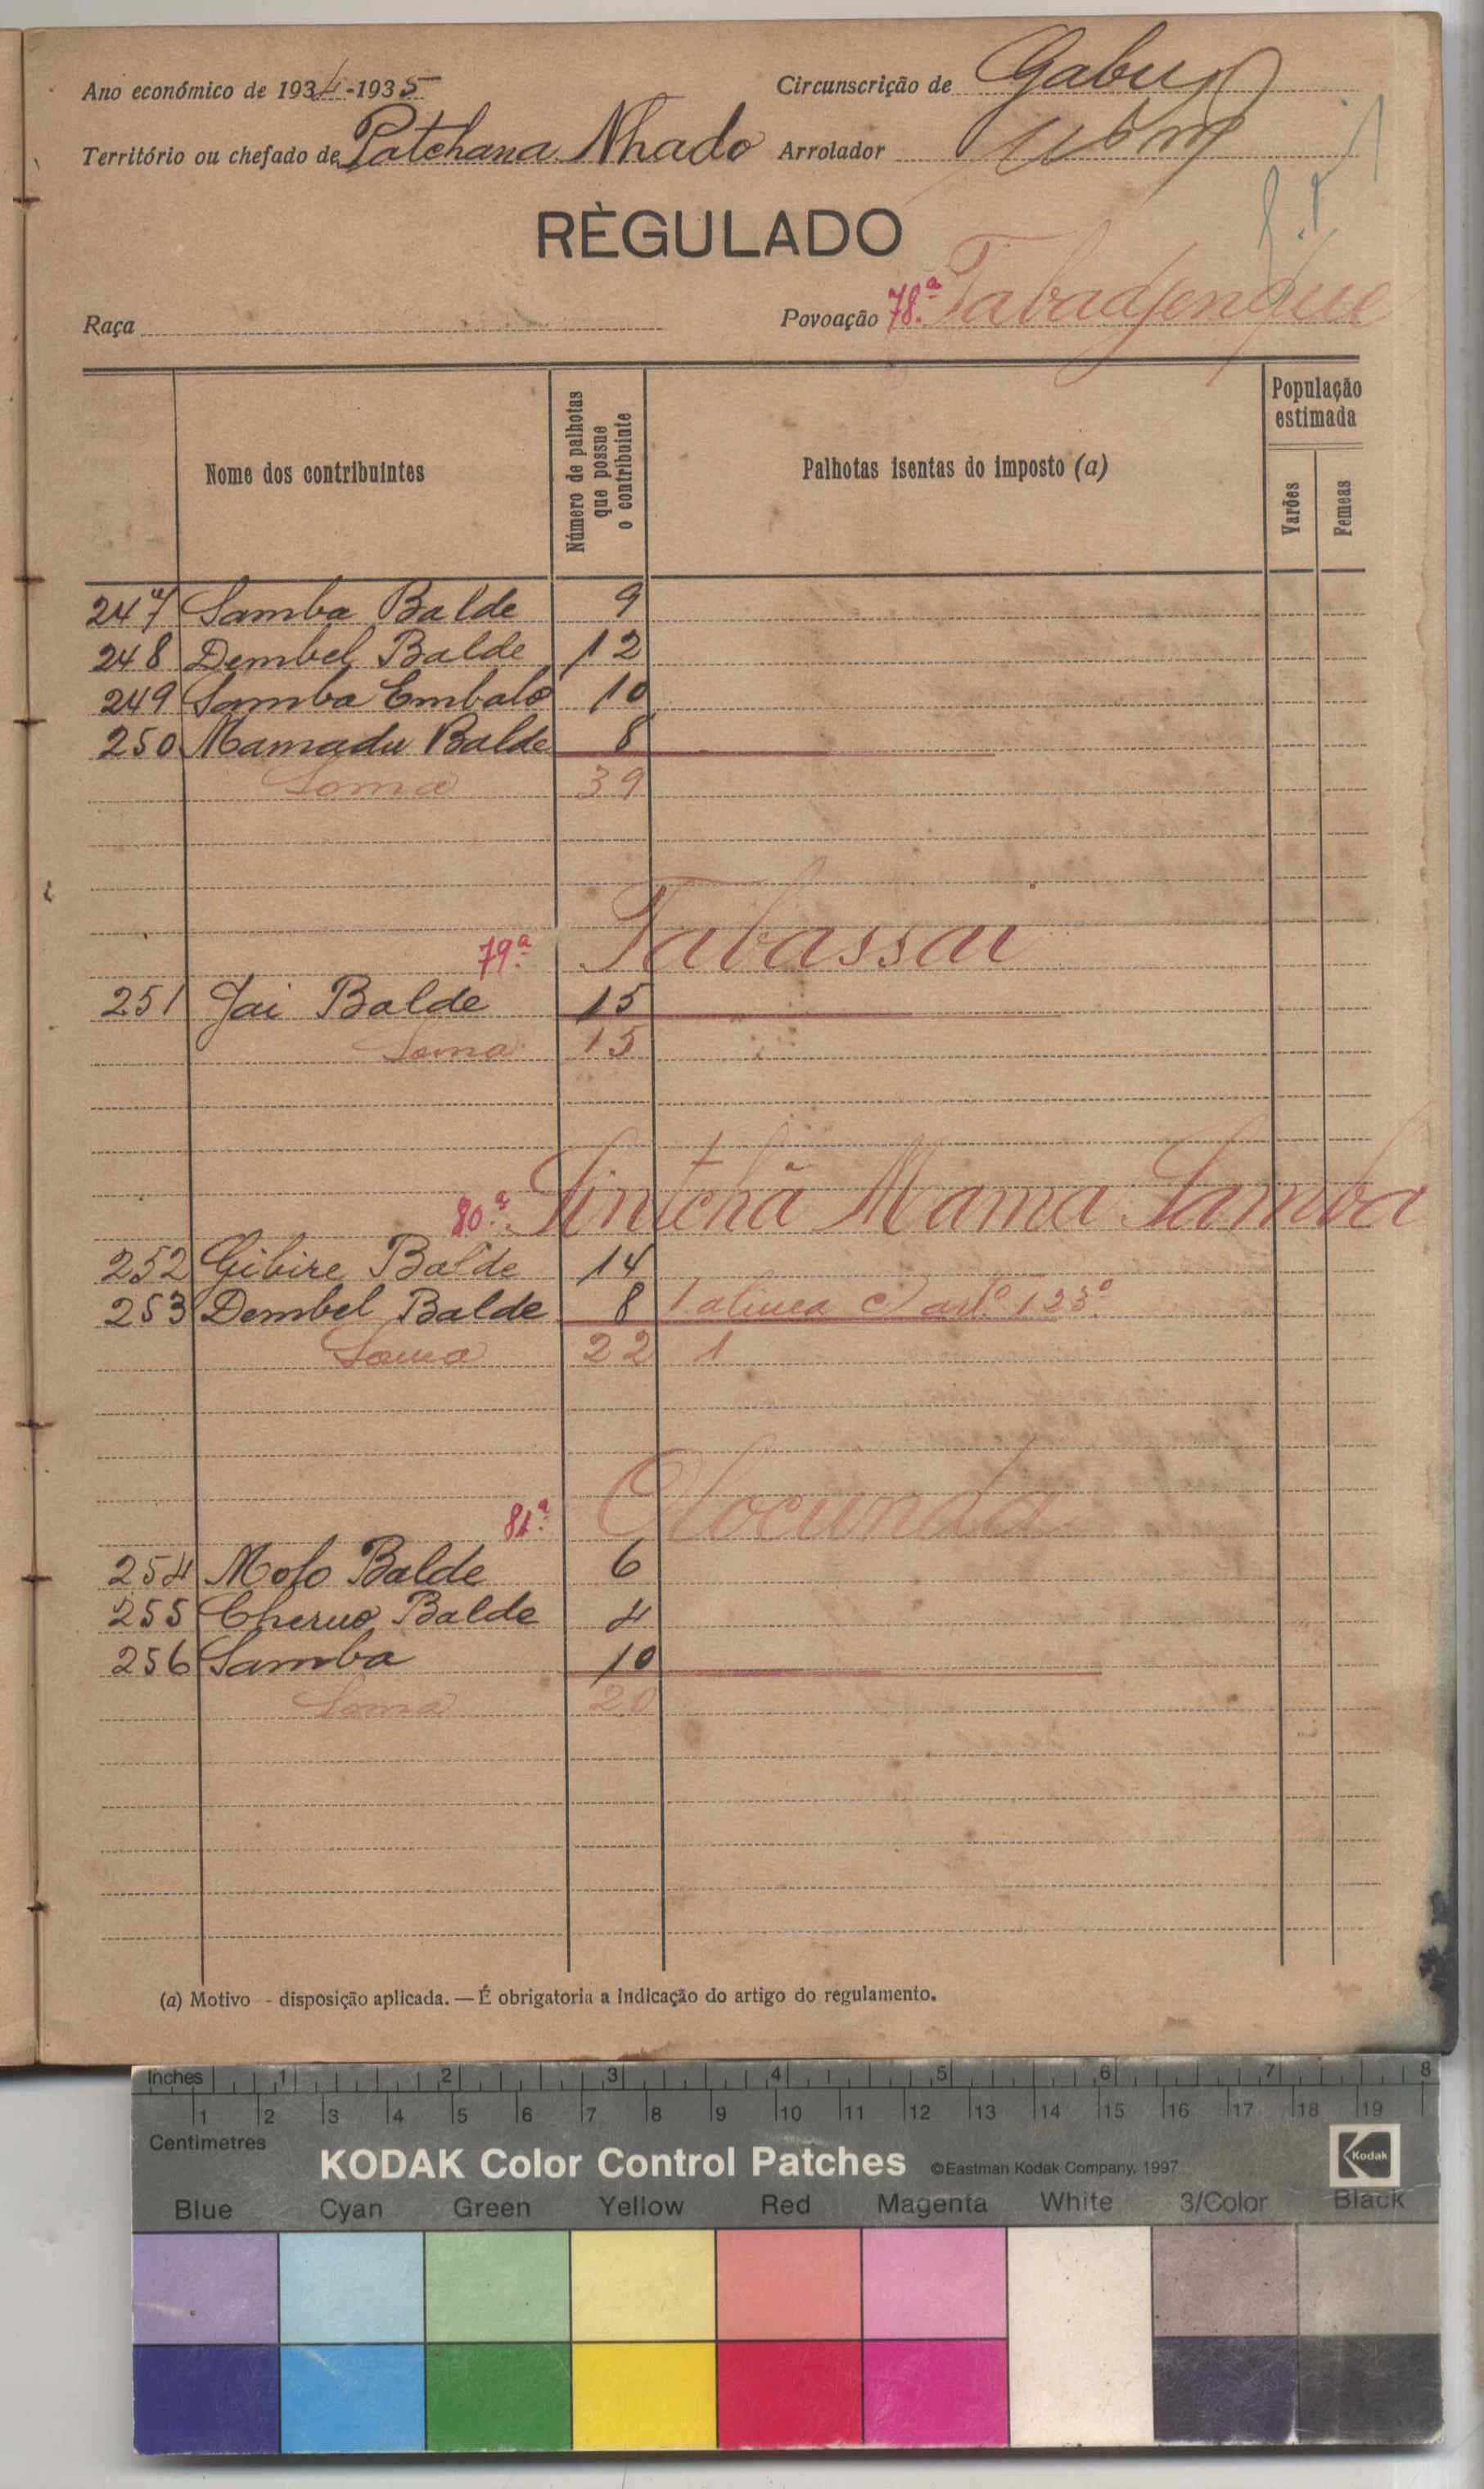 Ano económico de 1934-1935
Circunscrição de Gabu
Território ou chefado de Patchana Nhado Arrolador
RÈGULADO
Raça
Povoação 78.ª Tabadjenque
Nome dos contribuintes
Número de palhotas que possue o contribuinte
Palhotas isentas do imposto (a)
População estimada
Varões
Femeas
247 Samba Balde 9
248 Dembel Balde 12
249 Samba Embaló 10
250 Mamadu Balde 8
Soma 39
79.ª Tabassai
251 Jai Balde 15
Soma 15
80.ª Sintchã Mama Samba
252 Gibire Balde 14
253 Dembel Balde 8 1 alinea c) artº 123º
Soma 22 1
81.ª
254 Molo Balde 6
255 Cherno Balde 4
256 Samba 10
Soma 20
(a) Motivo - disposição aplicada. — É obrigatoria a indicação do artigo do regulamento.
Inches 1 2 3 4 5 6 7 8
1 2 3 4 5 6 7 8 9 10 11 12 13 14 15 16 17 18 19
Centimetres
KODAK Color Control Patches ©Eastman Kodak Company, 1997 Kodak
Blue Cyan Green Yellow Red Magenta White 3/Color Black